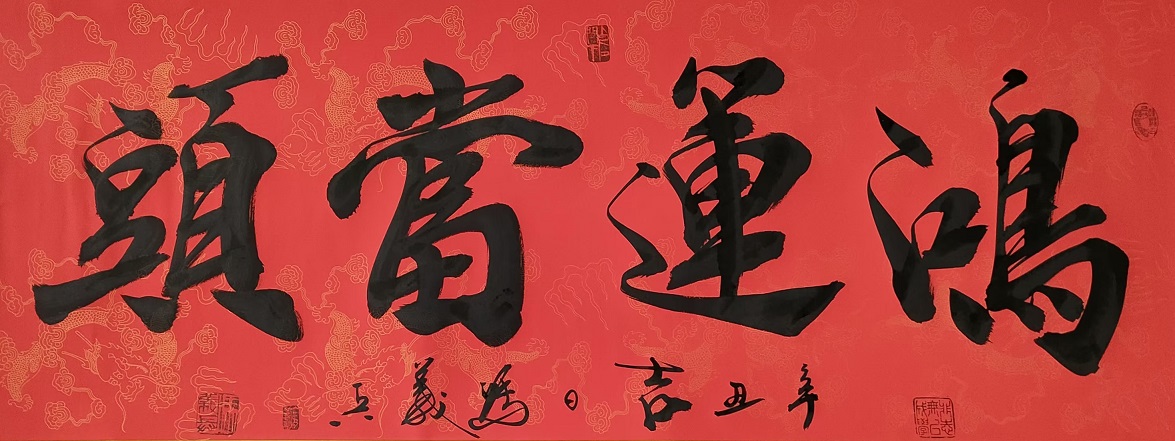 鴻運當頭
辛丑吉日馮義